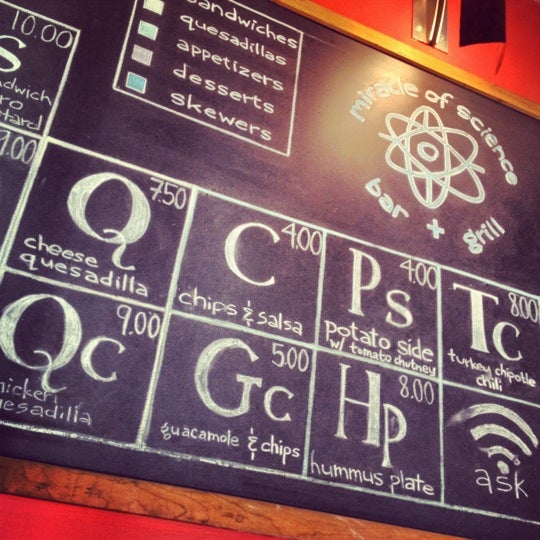 sandwiches
quesadillas
appetizers
desserts
skewers
miracle of science
bar + grill
10.00
S
9.00
Q
7.50
cheese
quesadilla
C
4.00
chips & salsa
Ps
4.00
potato side
w/ tomato chutney
Tc
8.00
turkey chipotle
chili
Qc
9.00
chicken
quesadilla
Gc
5.00
guacamole & chips
Hp
8.00
hummus plate
ask